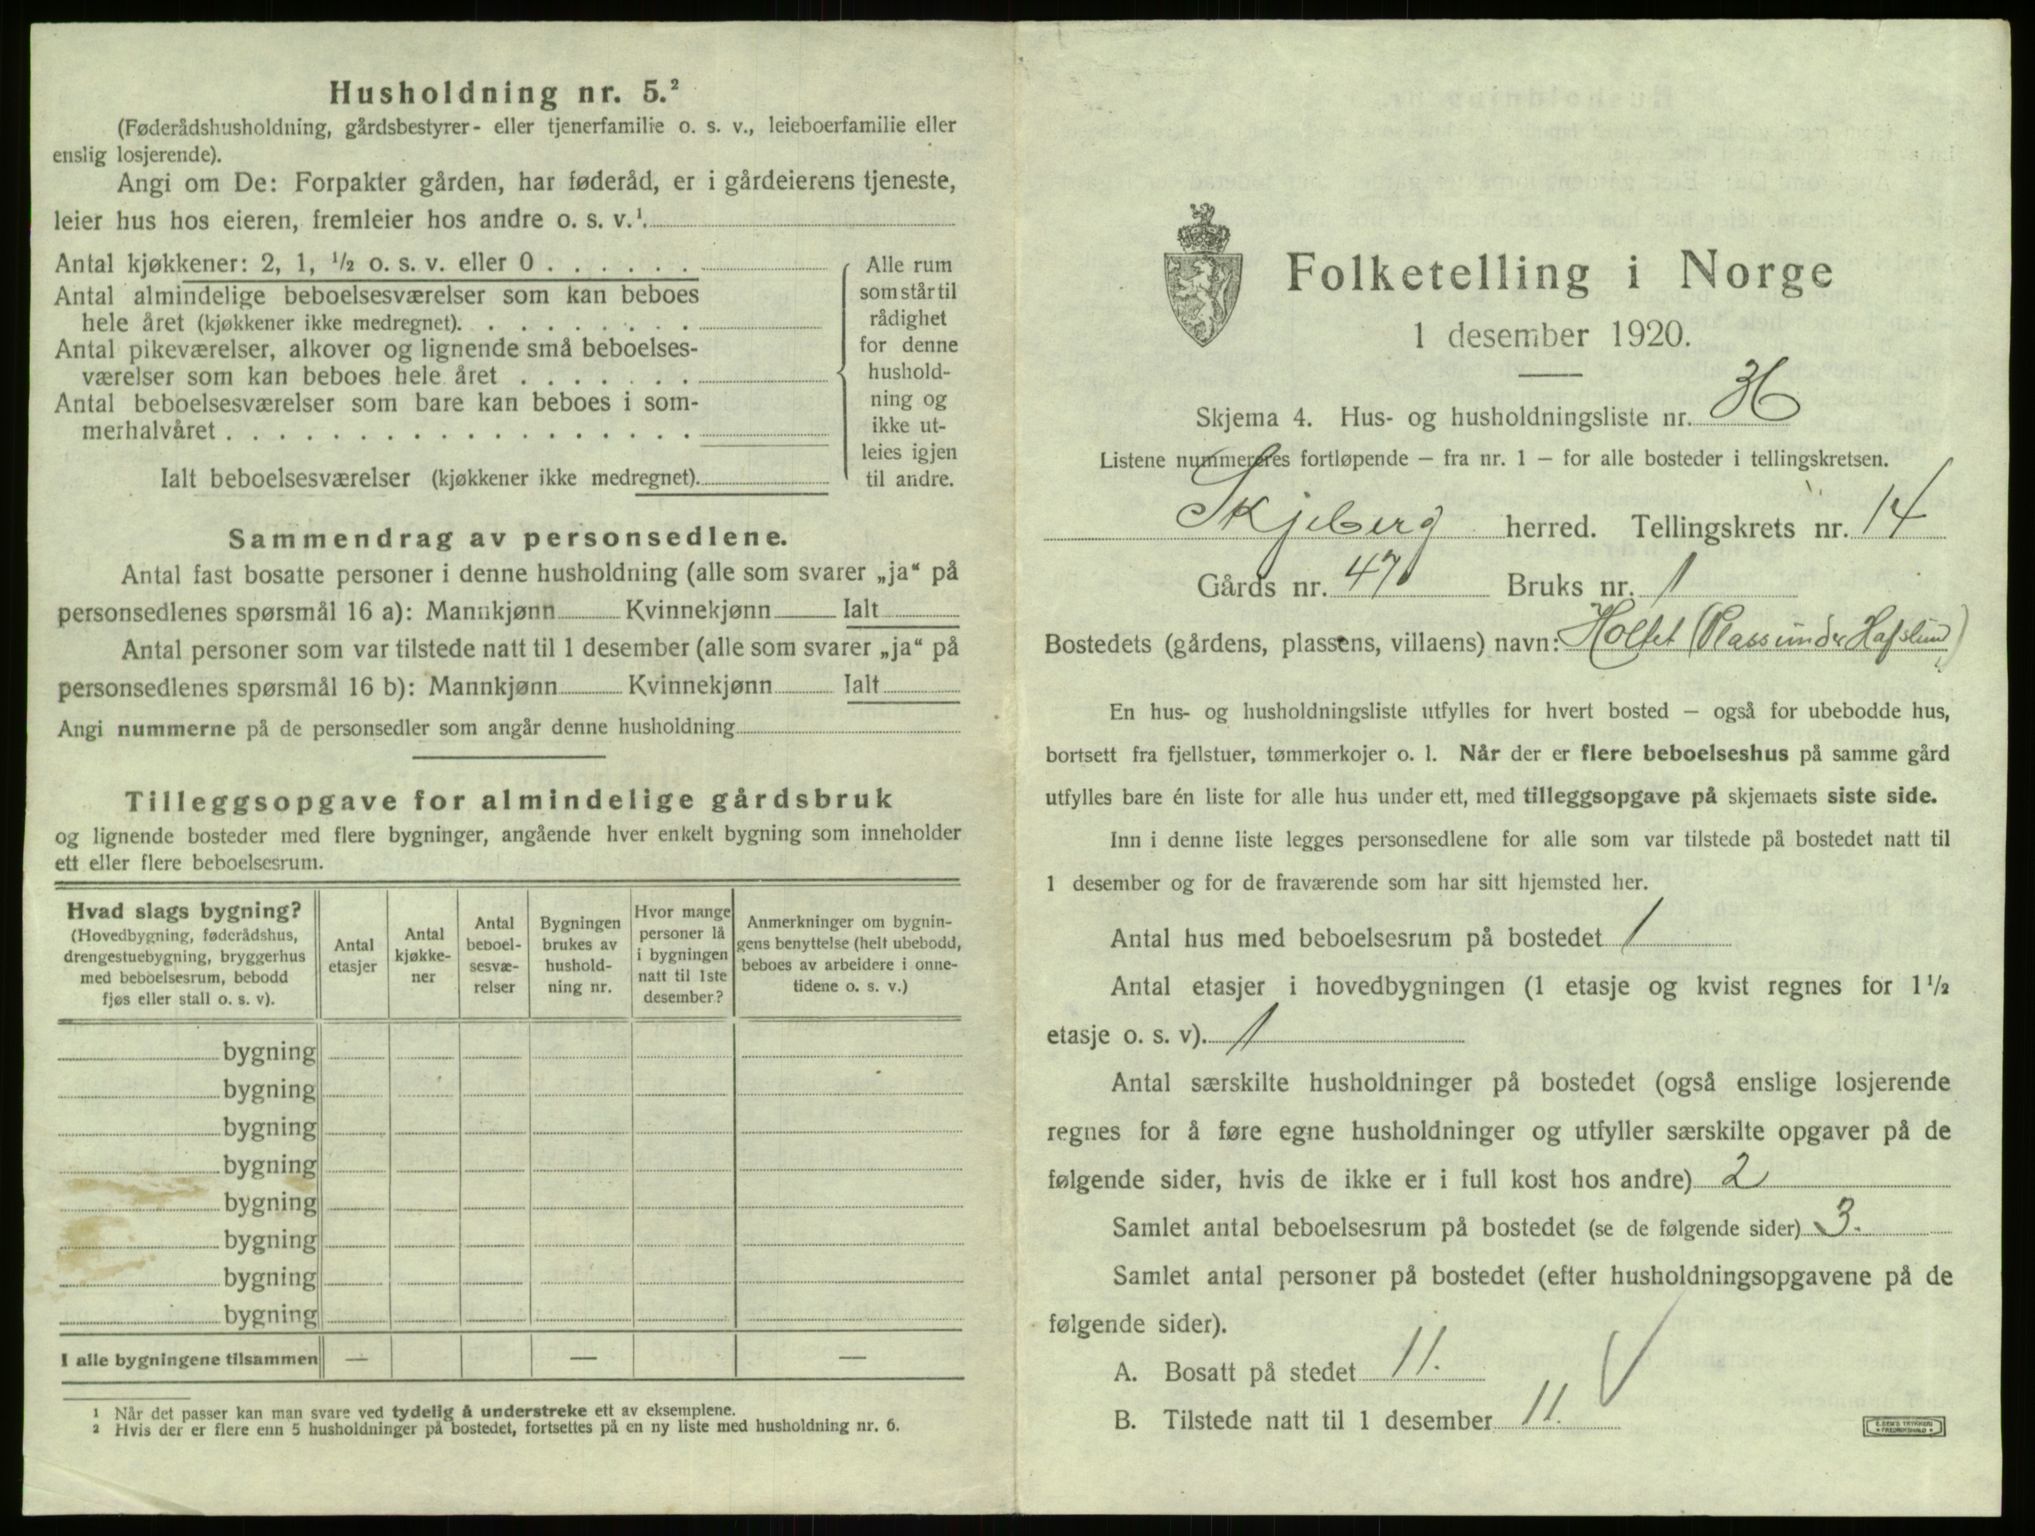 Husholdning nr. 5.²
(Føderådshusholdning, gårdsbestyrer- eller tjenerfamilie o. s. v., leieboerfamilie eller
enslig losjerende).
Angi om De: Forpakter gården, har føderåd, er i gårdeierens tjeneste,
leier hus hos eieren, fremleier hos andre o. s. v.¹
Antal kjøkkener: 2, 1, ½ o. s. v. eller 0
Antal almindelige beboelsesværelser som kan beboes
hele året (kjøkkener ikke medregnet).
Antal pikeværelser, alkover og lignende små beboelses-
værelser som kan beboes hele året
Antal beboelsesværelser som bare kan beboes i som-
merhalvåret
Ialt beboelsesværelser (kjøkkener ikke medregnet).
Alle rum
som står til
rådighet
for denne
hushold-
ning og
ikke ut-
leies igjen
til andre.
Sammendrag av personsedlene.
Antal fast bosatte personer i denne husholdning (alle som svarer „ja“ på
personsedlenes spørsmål 16 a): Mannkjønn Kvinnekjønn Ialt
Antal personer som var tilstede natt til 1 desember (alle som svarer „ja“ på
personsedlenes spørsmål 16 b): Mannkjønn Kvinnekjønn Ialt
Angi nummerne på de personsedler som angår denne husholdning
Tilleggsopgave for almindelige gårdsbruk
og lignende bosteder med flere bygninger, angående hver enkelt bygning som inneholder
ett eller flere beboelsesrum.
Hvad slags bygning?
(Hovedbygning, føderådshus,
drengestuebygning, bryggerhus
med beboelsesrum, bebodd
fjøs eller stall o. s. v).
Antal
etasjer
Antal
kjøkke-
ner
Antal
beboel-
sesvæ-
relser
Bygningen
brukes av
hushold-
ning nr.
Hvor mange
personer lå
i bygningen
natt til 1ste
desember?
Anmerkninger om bygnin-
gens benyttelse (helt ubebodd,
beboes av arbeidere i onne-
tidene o. s. v.)
bygning
bygning
bygning
bygning
bygning
bygning
bygning
bygning
I alle bygningene tilsammen — — —
¹ Når det passer kan man svare ved tydelig å understreke ett av eksemplene.
² Hvis der er flere enn 5 husholdninger på bostedet, fortsettes på en ny liste med husholdning nr. 6.
Folketelling i Norge
1 desember 1920.
Skjema 4. Hus- og husholdningsliste nr. 36
Listene nummereres fortløpende — fra nr. 1 — for alle bosteder i tellingskretsen.
Skjeberg herred. Tellingskrets nr. 14
Gårds nr. 47 Bruks nr. 1
Bostedets (gårdens, plassens, villaens) navn: Holtet (Plass under Hafslund)
En hus- og husholdningsliste utfylles for hvert bosted — også for ubebodde hus,
bortsett fra fjellstuer, tømmerkojer o. l. Når der er flere beboelseshus på samme gård
utfylles bare én liste for alle hus under ett, med tilleggsopgave på skjemaets siste side.
Inn i denne liste legges personsedlene for alle som var tilstede på bostedet natt til
1 desember og for de fraværende som har sitt hjemsted her.
Antal hus med beboelsesrum på bostedet 1
Antal etasjer i hovedbygningen (1 etasje og kvist regnes for 1½
etasje o. s. v). 1
Antal særskilte husholdninger på bostedet (også enslige losjerende
regnes for å føre egne husholdninger og utfyller særskilte opgaver på de
følgende sider, hvis de ikke er i full kost hos andre) 2
Samlet antal beboelsesrum på bostedet (se de følgende sider) 3.
Samlet antal personer på bostedet (efter husholdningsopgavene på de
følgende sider).
A. Bosatt på stedet 11.
B. Tilstede natt til 1 desember 11.
E. SEM'S TRYKKERI
FREDRIKSHALD